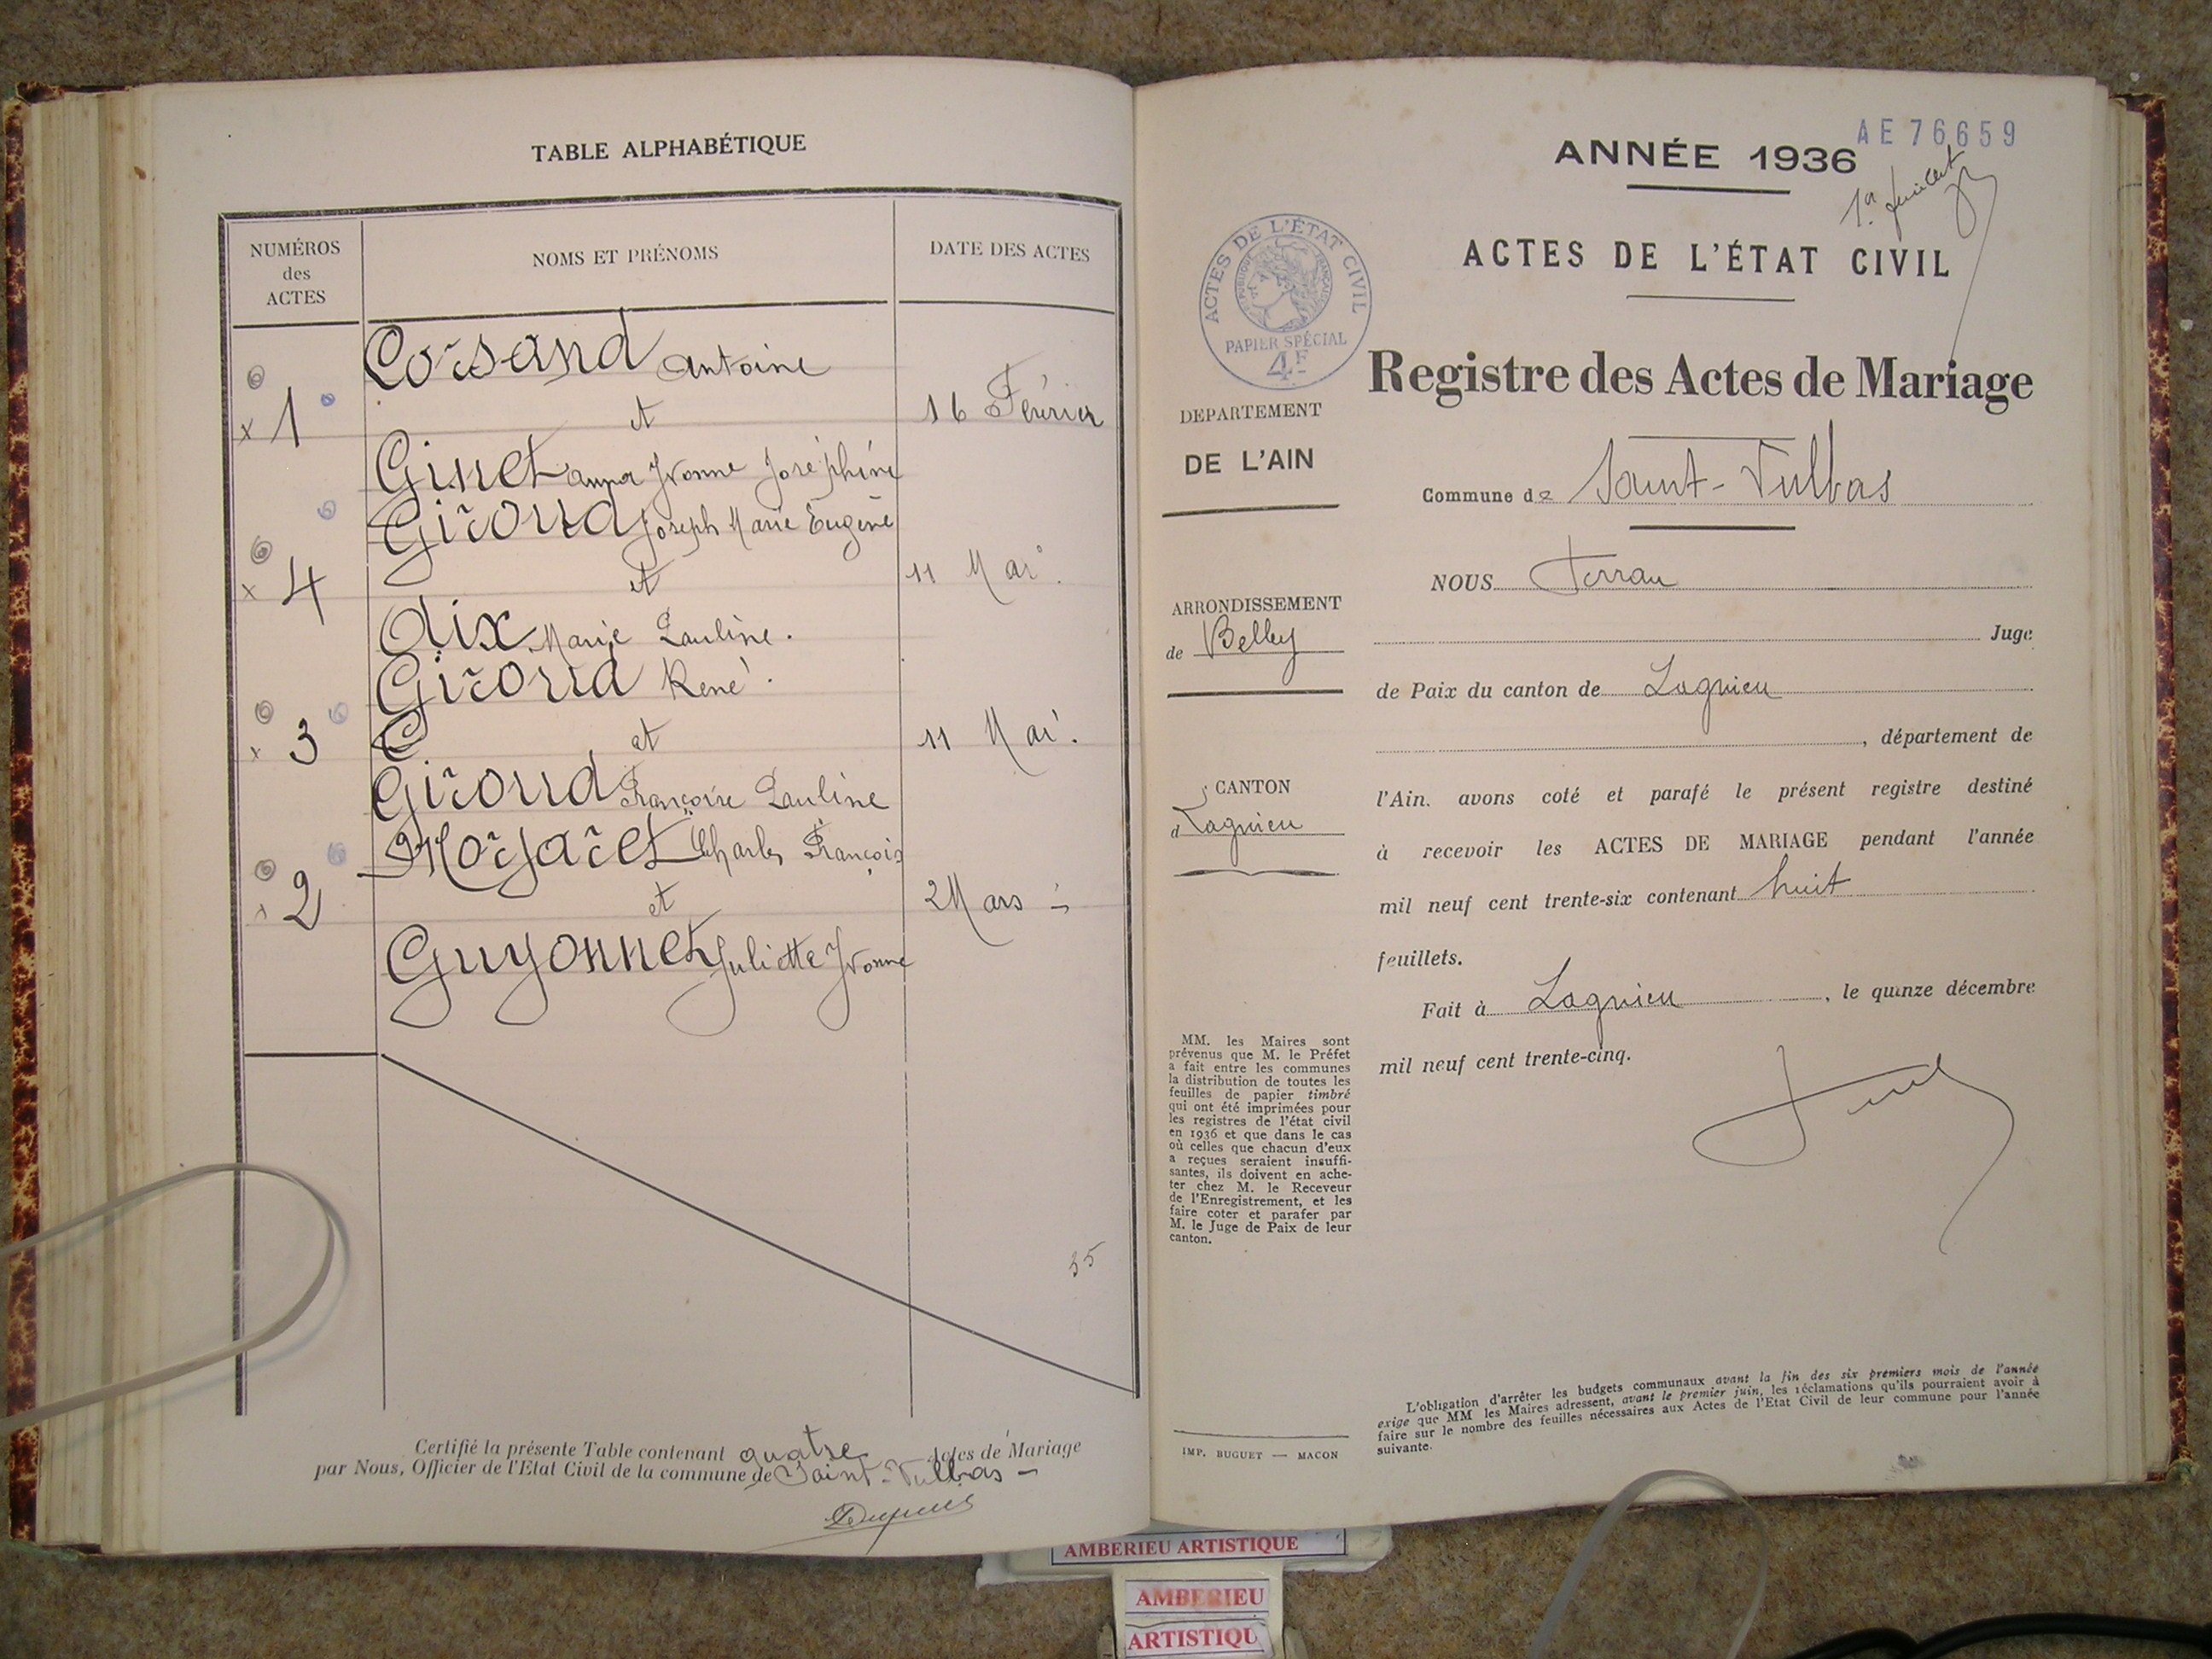 TABLE ALPHABÉTIQUE
NUMÉROS
des
ACTES
NOMS ET PRÉNOMS
DATE DES ACTES
Corsand Antoine
x 1 et 16 Février
Ginet Anna Yvonne Joséphine
Giroud Joseph Marie Eugène
x 4 et 11 Mai
Aix Marie Pauline.
Giroud René.
x 3 et 11 Mai.
Giroud Françoise Pauline
Morjaret Charles François
x 2 et 2 Mars
Guyonnet Juliette Yvonne
35
Certifié la présente Table contenant quatre Actes de Mariage
par Nous, Officier de l'Etat Civil de la commune de Saint-Vulbas
ANNÉE 1936
AE 76659
ACTES DE L'ÉTAT CIVIL
RÉPUBLIQUE FRANÇAISE
PAPIER SPÉCIAL
4F
ACTES DE L'ÉTAT CIVIL
Registre des Actes de Mariage
DEPARTEMENT
DE L'AIN
Commune de Saint-Vulbas
NOUS Ferran
Juge
ARRONDISSEMENT
de Belley
de Paix du canton de Lagnieu
, département de
CANTON
d Lagnieu
l'Ain. avons coté et parafé le présent registre destiné
à recevoir les ACTES DE MARIAGE pendant l'année
mil neuf cent trente-six contenant huit
feuillets.
Fait à Lagnieu, le quinze décembre
mil neuf cent trente-cinq.
MM. les Maires sont
prévenus que M. le Préfet
a fait entre les communes
la distribution de toutes les
feuilles de papier timbré
qui ont été imprimées pour
les registres de l'état civil
en 1936 et que dans le cas
où celles que chacun d'eux
a reçues seraient insuffi-
santes, ils doivent en ache-
ter chez M. le Receveur
de l'Enregistrement, et les
faire coter et parafer par
M. le Juge de Paix de leur
canton.
L'obligation d'arrêter les budgets communaux avant la fin des six premiers mois de l'année
exige que MM les Maires adressent, avant le premier juin, les réclamations qu'ils pourraient avoir à
faire sur le nombre des feuilles nécessaires aux Actes de l'Etat Civil de leur commune pour l'année
suivante.
IMP. BUGUET — MACON
AMBERIEU ARTISTIQUE
AMBERIEU
ARTISTIQU